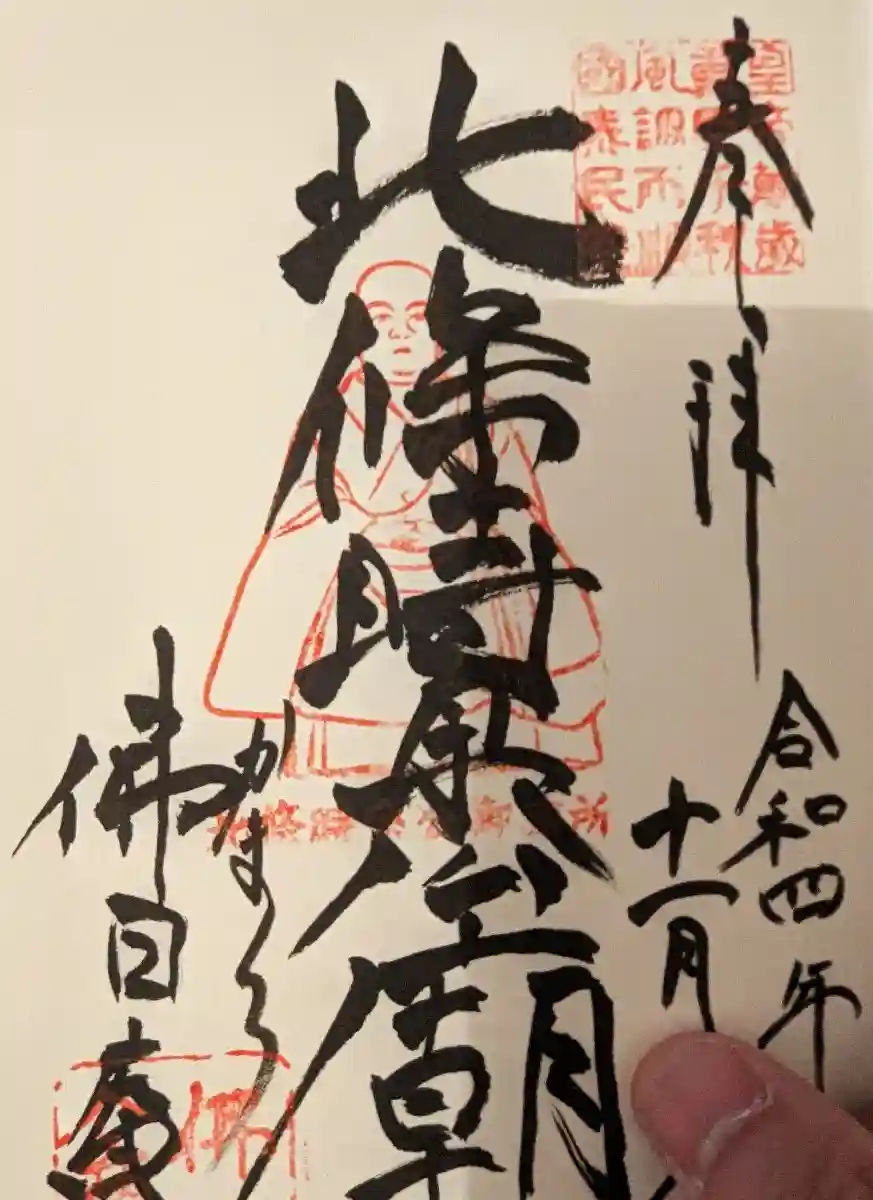 奉拝
皇帝萬歳
千秋
風調雨順
國泰民
令和四年
十一月
北條時宗公廟
北條時宗公御廟所
かまくら
佛日庵